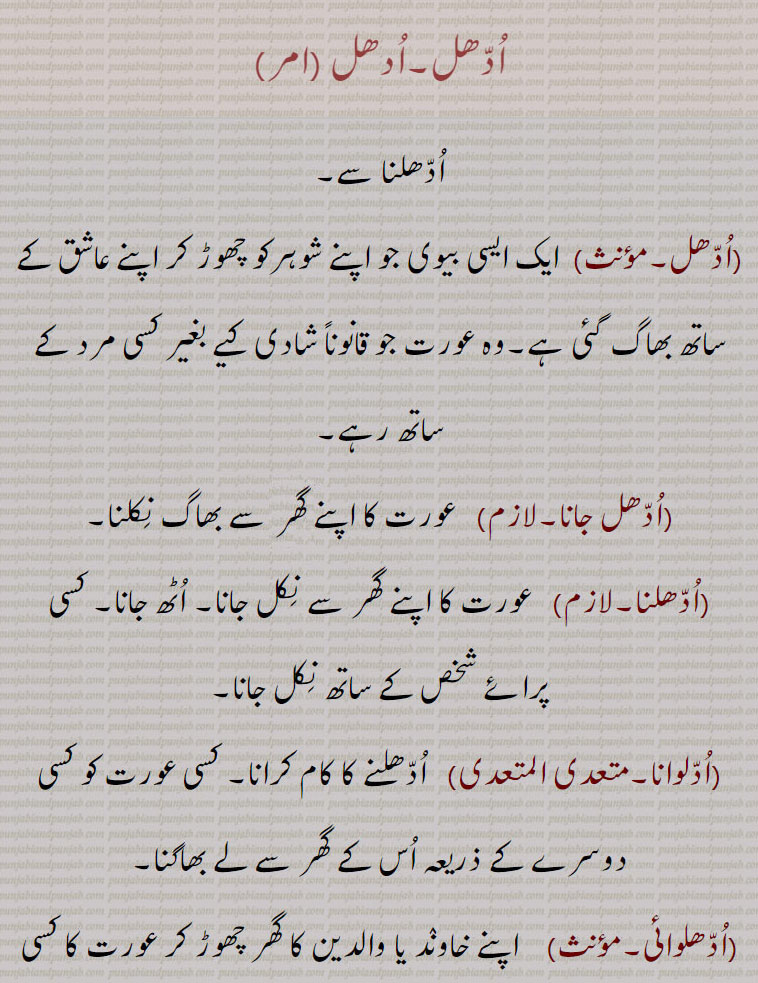 اُدّھل۔اُدھل (امر)
اُدّھلنا سے۔
(اُدّھل۔مؤنث) ایک ایسی بیوی جو اپنے شوہرکو چھوڑ کر اپنے عاشق کے
ساتھ بھاگ گئی ہے۔وہ عورت جو قانوناً شادی کیے بغیر کسی مرد کے
ساتھ رہے۔
(اُدّھل جانا۔لازم) عورت کا اپنے گھر سے بھاگ نِکلنا۔
(اُدّھلنا۔لازم) عورت کا اپنے گھر سے نِکل جانا۔ اُٹھ جانا۔ کسی
پرائے شخص کے ساتھ نِکل جانا۔
(اُدّلوانا۔متعدی المتعدی) اُدّھلنے کا کام کرانا۔ کسی عورت کو کسی
دوسرے کے ذریعہ اُس کے گھر سے لے بھاگنا۔
(اُدّھلوائی۔مؤنث) اپنے خاونْد یا والدین کا گھر چھوڑ کر عورت کا کسی